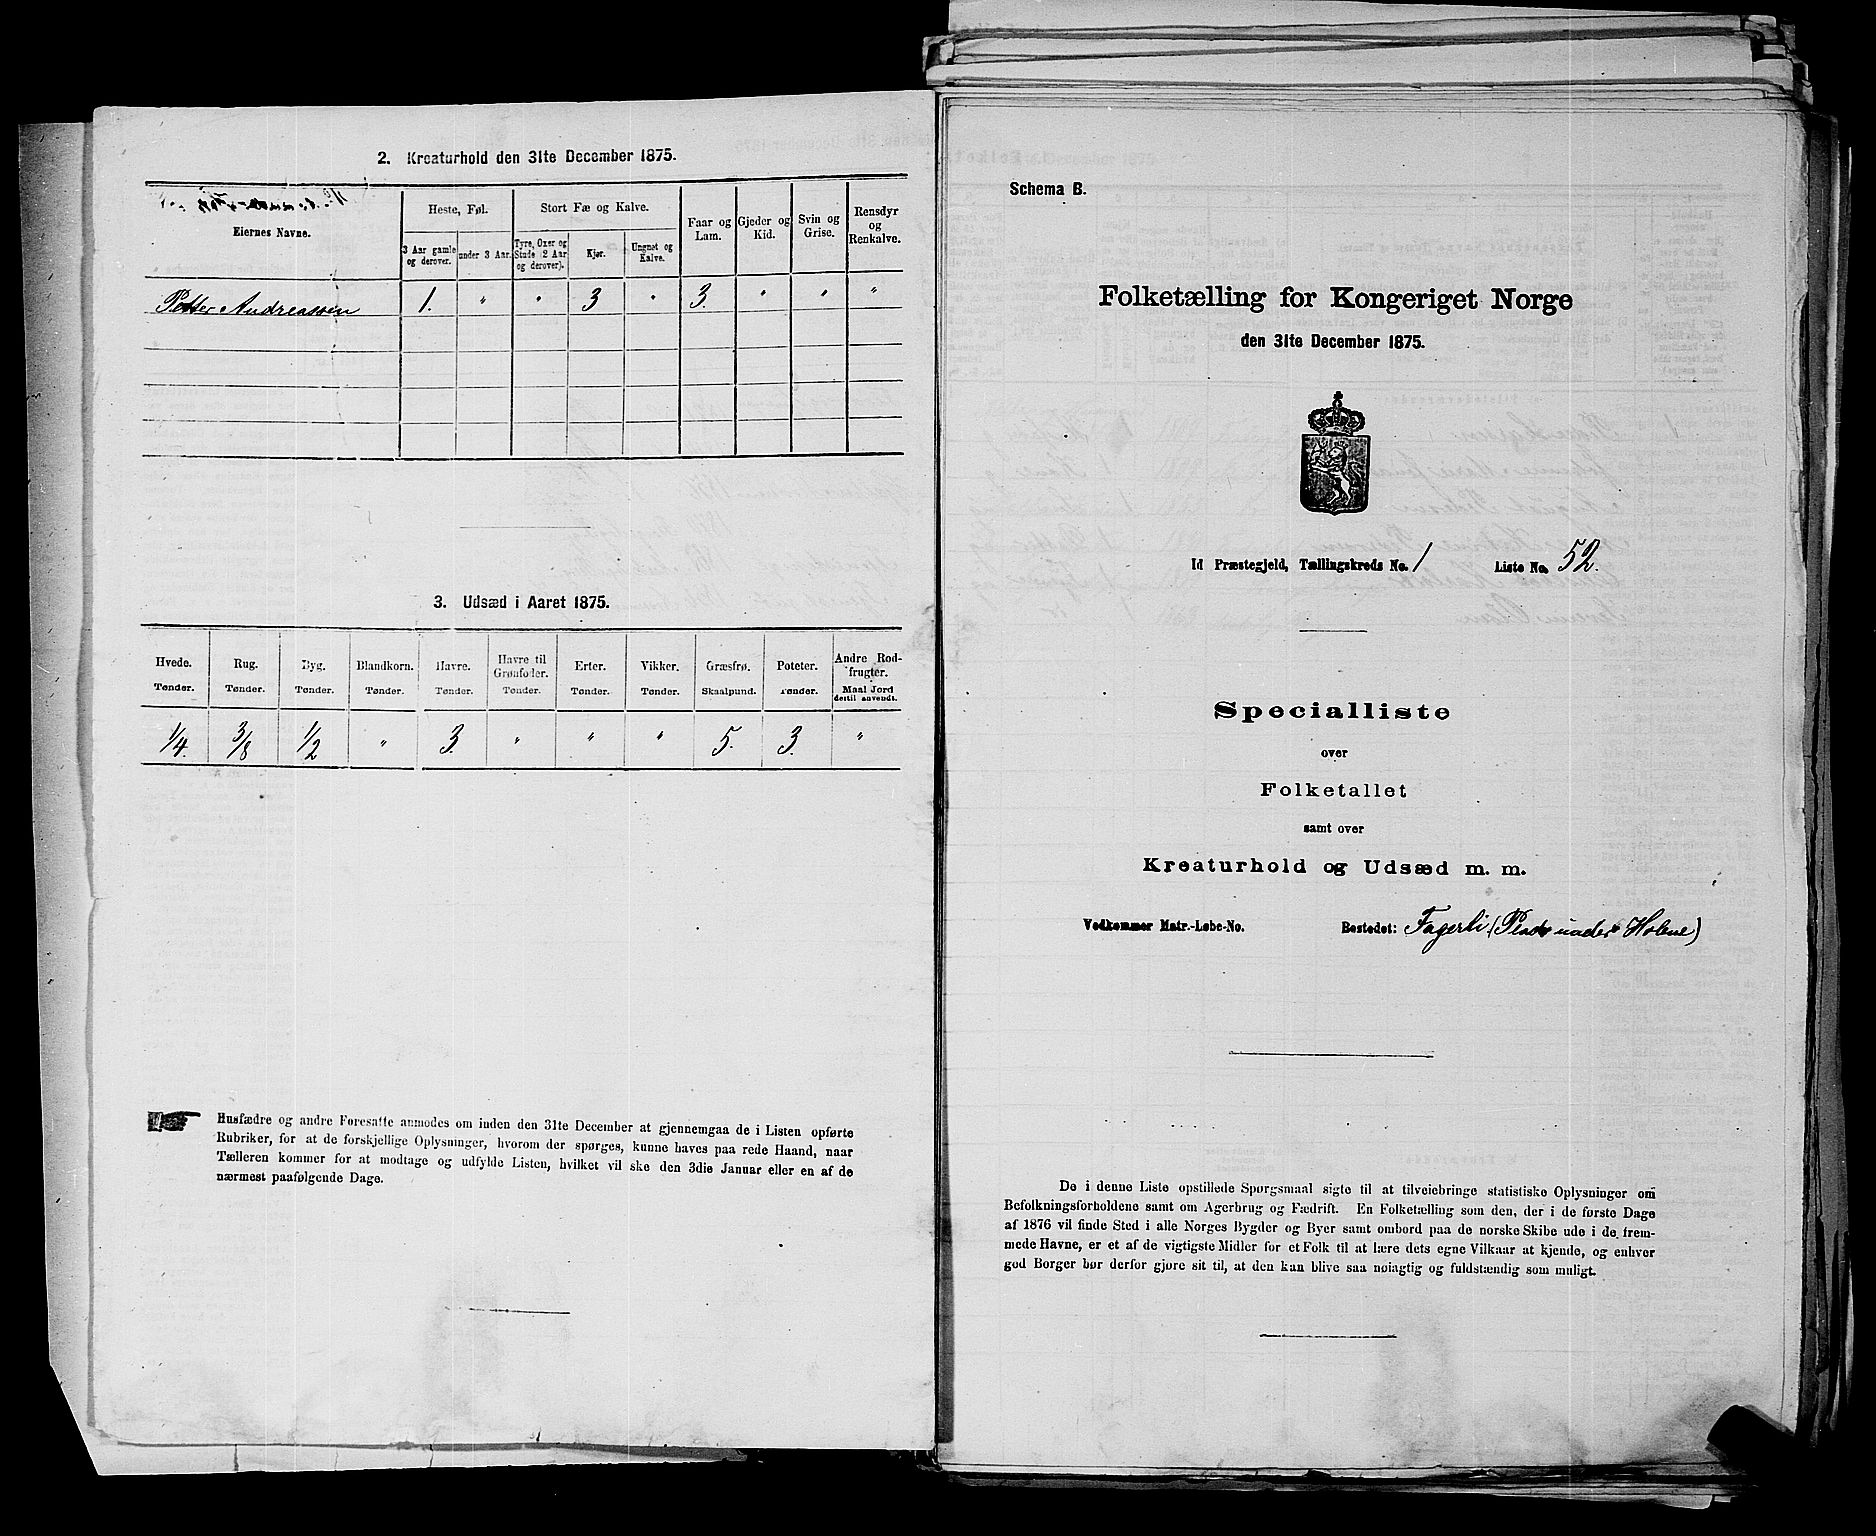 2. Kreaturhold den 31te December 1875.
Eiernes Navne.
Heste, Føl.
3 Aar gamle og derover.
under 3 Aar.
Stort Fæ og Kalve.
Tyre, Oxer og Stude (2 Aar og derover).
Kjør.
Ungnøt og Kalve.
Faar og Lam.
Gjeder og Kid.
Svin og Grise.
Rensdyr og Renkalve.
Petter Andreassen 1. " " 3 " 3. " " "
3. Udsæd i Aaret 1875.
Hvede. Rug. Byg. Blandkorn. Havre. Havre til Grønfoder. Erter. Vikker. Græsfrø. Poteter. Andre Rodfrugter.
Tønder. Tønder. Tønder. Tønder. Tønder. Tønder. Tønder. Tønder. Skaalpund. Tønder. Maal Jord dertil anvendt.
1/4. 3/8 1/2 " 3. " " " 5. 3. "
Husfædre og andre Foresatte anmodes om inden den 31te December at gjennemgaa de i Listen opførte
Rubriker, for at de forskjellige Oplysninger, hvorom der spørges, kunne haves paa rede Haand, naar
Tælleren kommer for at modtage og udfylde Listen, hvilket vil ske den 3die Januar eller en af de
nærmest paafølgende Dage.
Schema B.
Folketælling for Kongeriget Norge
den 31te December 1875.
Id Præstegjeld, Tællingskreds No. 1 Liste No. 52.
Specialliste
over
Folketallet
samt over
Kreaturhold og Udsæd m. m.
Vedkommer Matr.-Løbe-No. Bostedet: Fagerli (Plads under Holene)
De i denne Liste opstillede Spørgsmaal sigte til at tilveiebringe statistiske Oplysninger om
Befolkningsforholdene samt om Agerbrug og Fædrift. En Folketælling som den, der i de første Dage
af 1876 vil finde Sted i alle Norges Bygder og Byer samt ombord paa de norske Skibe ude i de frem-
mede Havne, er et af de vigtigste Midler for et Folk til at lære dets egne Vilkaar at kjende, og enhver
god Borger bør derfor gjøre sit til, at den kan blive saa nøiagtig og fuldstændig som muligt.